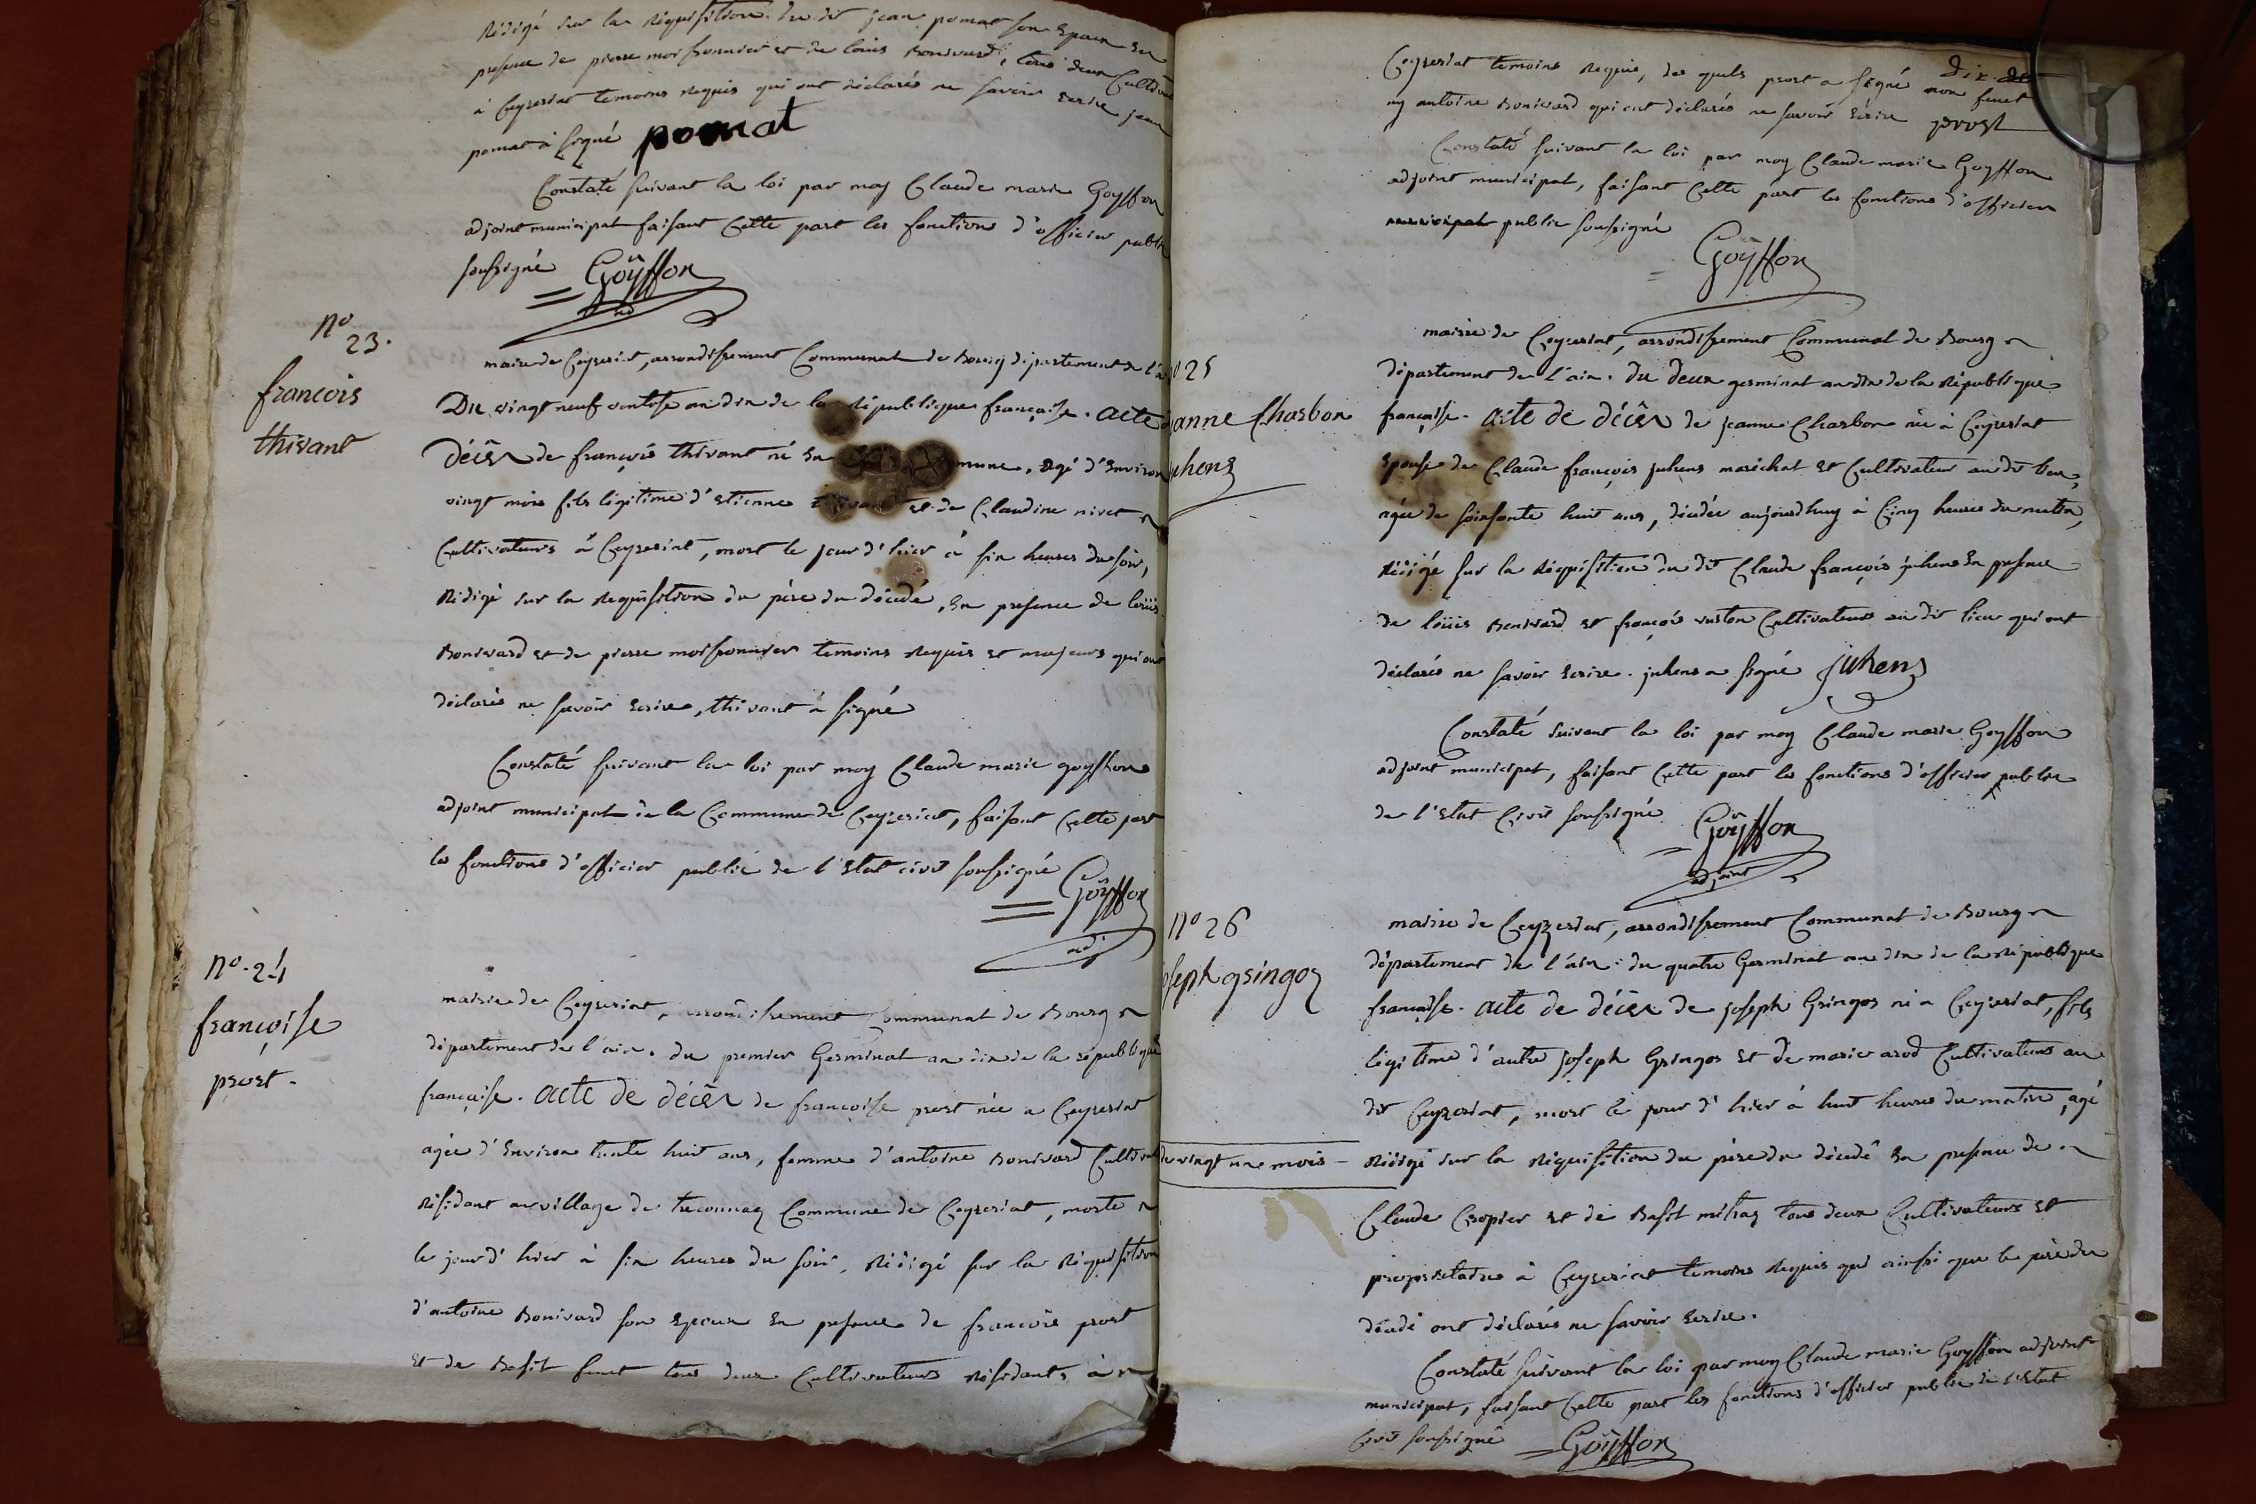 Rédigé sur la Réquisition du dit jean pomat son Epoux En
presence de pierre moissonnier et de louis Bonivard, tous deux Cultivat
à Ceyzeriat temoins requis qui ont déclarés ne savoir Ecrire jean
pomat à signé pomat
Constaté suivant la loi par moy Claude marie Goyffon
adjoint municipal faisant Cette part les fonctions d'officier public
soussigné Goÿffon
adj
N° 23.
françois
thivant
mairie de Ceyzeriat, arrondissement Communal de Bourg département de l'ain
Du vingt neuf ventose an dix de la République française. acte de
décès de françois thivant né En mune, agé d'Environ
vingt mois fils légitime d'Etienne thivant et de Claudine nivet
Cultivateurs à Ceyzeriat, mort le jour d'hier à six heures du soir,
Rédigé sur la Réquisition du père du décédé, En presence de loüis
Bonivard et de pierre moissonnier temoins Requis et majeurs qui ont
déclarés ne savoir Ecrire, thivant à signé
Constaté suivant la loi par moy Claude marie goyffon
adjoint municipal de la Commune de Ceyzeriat, faisant Cette part
les fonctions d'officier public de l'Etat civil soussigné Goÿffon
adj.
N°. 24
françoise
prost.
mairie de Ceyzeriat, arrondissement Communal de Bourg
département de l'ain. du premier Germinal an dix de la république
française. acte de décès de françoise prost née a Ceyzeriat
agée d'Environ trente huit ans, femme d'antoine Bonivard Cultivat
Résidant au village de treconnaz Commune de Ceyzeriat, morte
le jour d'hier à six heures du soir, Rédigé sur la Réquisition
d'antoine Bonivard son Epoux En presence de françois prost
et de Basit fenet tous deux Cultivateurs Résidants à
Ceyzeriat temoins Requis, des quels prost a signé non fenet
ny antoine Bonivard qui ont déclarés ne savoir Ecrire prost
Constaté suivant la loi par moy Claude marie Goyffon
adjoint municipal, faisant Cette part les fonctions d'officier
municipal public soussigné
Goÿffon
25
anne Charbon
uhens
mairie de Ceyzeriat, arrondissement Communal de Bourg
département de l'ain. du deux germinal an dix de la République
française. acte de décès de jeanne Charbon née à Ceyzeriat
Epouse de Claude françois juhens maréchal et Cultivateur au dit lieu,
agée de soixante huit ans, décédée aujourdhuy à Cinq heures du matin,
Rédigé sur la Réquisition du dit Claude françois juhens En presence
de loüis Bonivard et françois Cultivateurs au dit lieu qui ont
déclarés ne savoir Ecrire. juhens a signé juhens
Constaté suivant la loi par moy Claude marie Goyffon
adjoint municipal, faisant Cette part les fonctions d'officier public
de l'Etat Civil soussigné Goÿffon
adjoint
N° 26
oseph gringoz
mairie de Ceyzeriat, arrondissement Communal de Bourg
département de l'ain. du quatre Germinal an dix de la République
française. acte de décès de joseph Gringos né a Ceyzeriat, fils
légitime d'autre joseph Gringos et de marie arod Cultivateurs au
dit Ceyzeriat, mort le jour d'hier à huit heures du matin, agé
de vingt un mois - Rédigé sur la Réquisition du père du décédé En presence de
Claude Cropier et de Basit mitraz tous deux Cultivateurs et
propriétaires à Ceyzeriat temoins Requis qui ainsi que le père du
décédé ont déclarés ne savoir Ecrire.
Constaté suivant la loi par moy Claude marie Goyffon adjoint
municipal, faisant Cette part les fonctions d'officier public de l'Etat
Civil soussigné Goÿffon